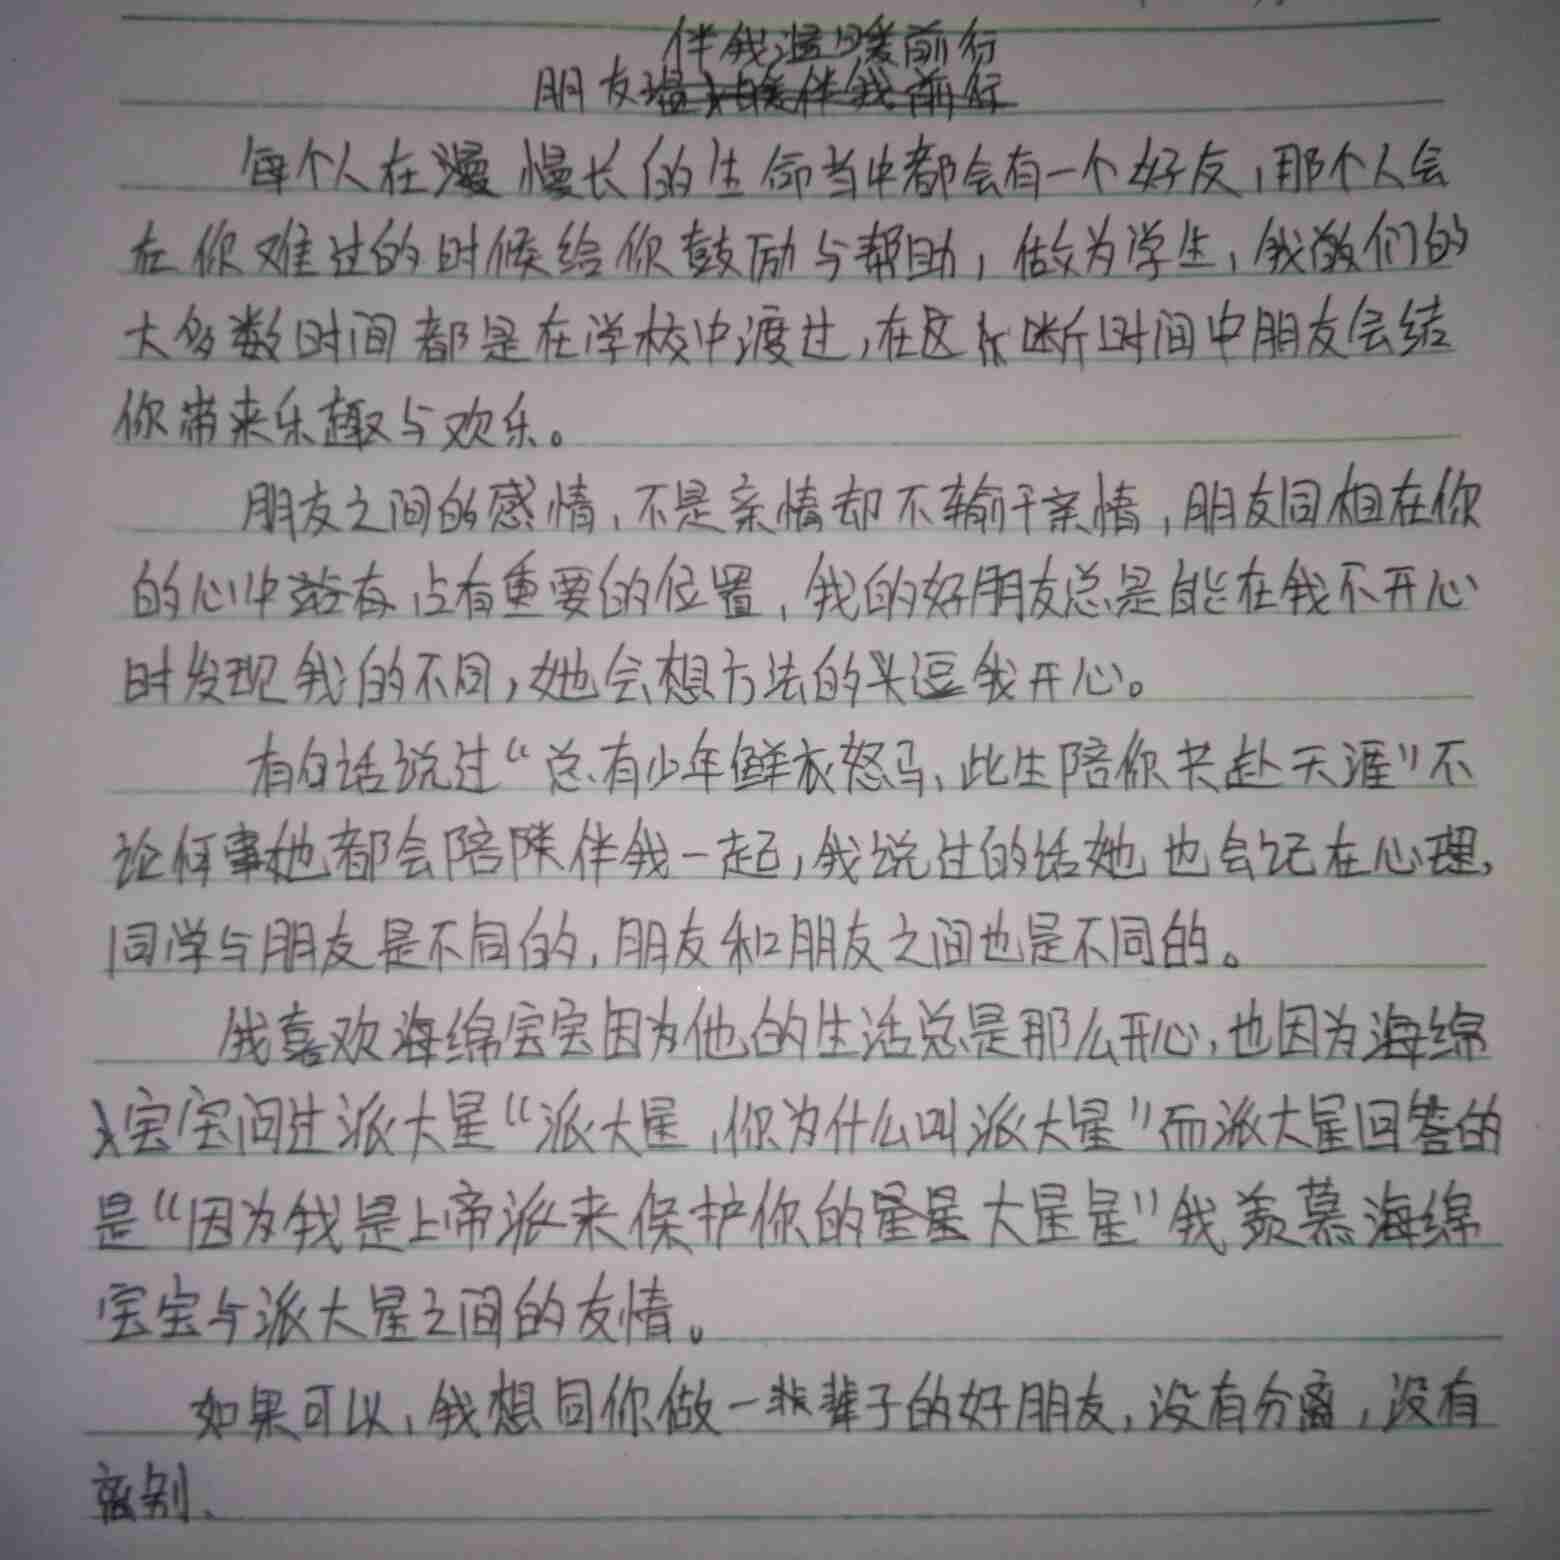 伴我温暖前行
朋友温暖伴我前行
每个人在漫慢长的生命当中都会有一个好友,那个人会
在你难过的时候给你鼓励与帮助,做为学生,我们的
大多数时间都是在学校中渡过,在这断时间中朋友会给
你带来乐趣与欢乐。
朋友之间的感情,不是亲情却不输于亲情,朋友同样在你
的心中占有重要的位置,我的好朋友总是能在我不开心
时发现我的不同,她会想方法的来逗我开心。
有句话说过“总有少年鲜衣怒马、此生陪你共赴天涯”不
论何事她都会陪伴我一起,我说过的话她也会记在心理,
同学与朋友是不同的,朋友和朋友之间也是不同的。
我喜欢海绵宝宝因为他的生活总是那么开心,也因为海绵
宝宝问过派大星“派大星,你为什么叫派大星”而派大星回答的
是“因为我是上帝派来保护你的星星大星星”我羡慕海绵
宝宝与派大星之间的友情。
如果可以,我想同你做一辈子的好朋友,没有分离,没有
离别、